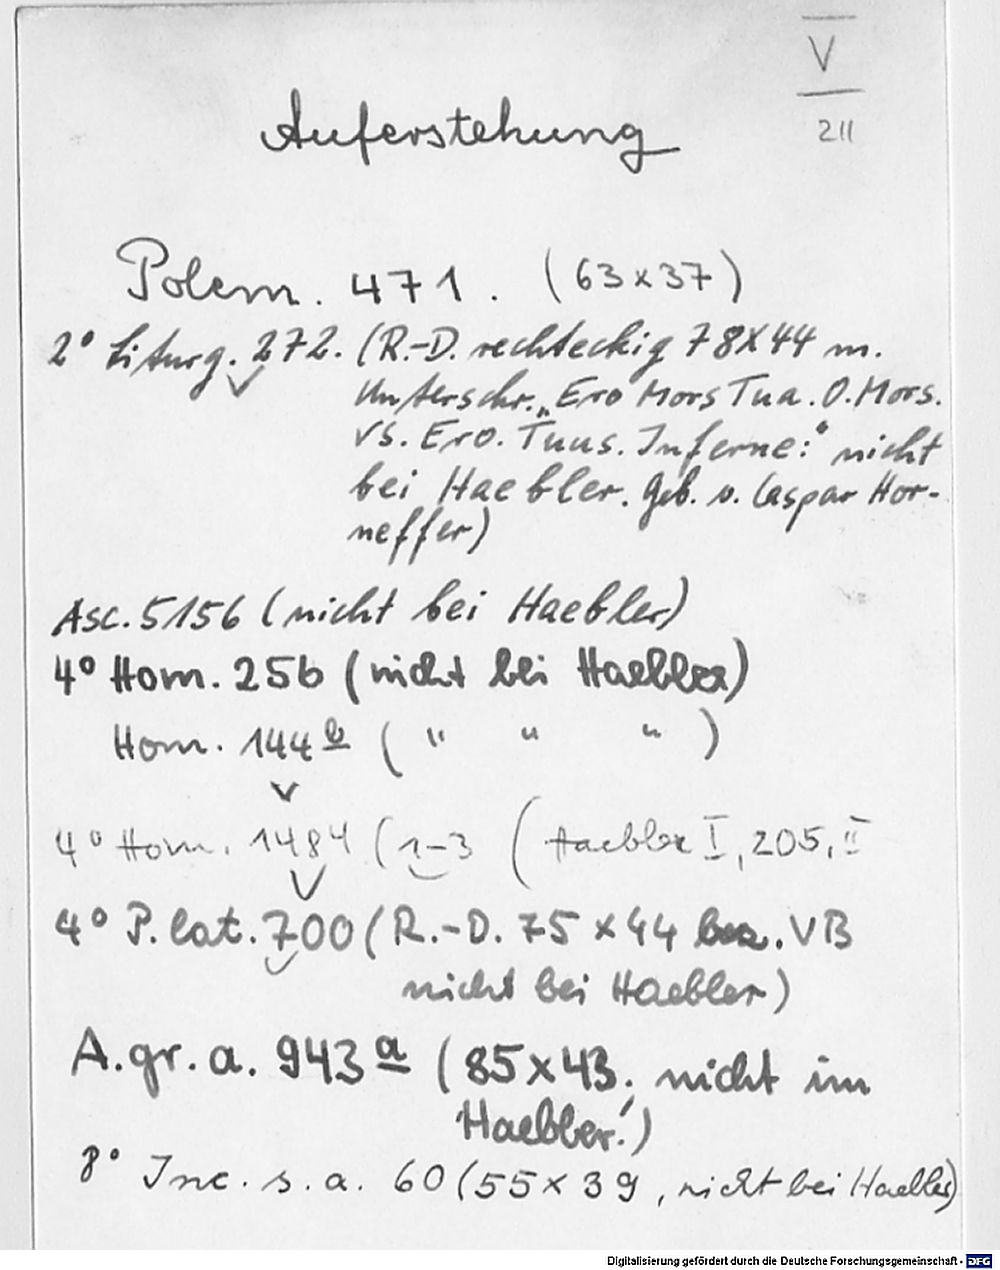 V
211
Auferstehung
Polem. 471. (63x37)
2° Liturg. 272. (R.-D. rechteckig 78X44 m.
Unterschr. „Ero Mors Tua. O. Mors.
VS. Ero. Tuus. Inferne:" nicht
bei Haebler. Geb. v. Caspar Hor-
neffer)
Asc. 5156 (nicht bei Haebler)
4° Hom. 256 (nicht bei Haebler)
Hom. 144 b ( " " " )
4° Hom. 1484 (1-3 (Haebler I, 205, II
4° P. lat. 700 (R.-D. 75 x 44 bez. VB
nicht bei Haebler)
A. gr. a. 943 a (85x43, nicht im
Haebler!)
8° Inc. s. a. 60 (55x39, nicht bei Haebler)
Digitalisierung gefördert durch die Deutsche Forschungsgemeinschaft - DFG